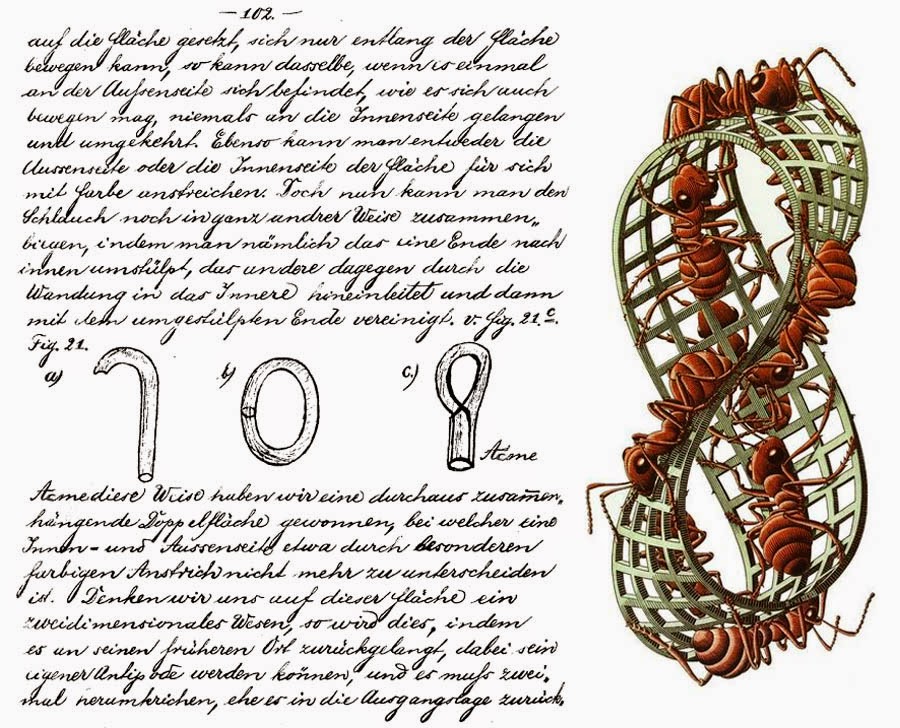 — 102. —
auf die Fläche gesetzt, sich nur entlang der Fläche
bewegen kann, so kann dasselbe, wenn es einmal
an der Aufsenseite sich befindet, wie es sich auch
bewegen mag, niemals an die Innenseite gelangen
und umgekehrt. Ebenso kann man entweder die
Aussenseite oder die Innenseite der Fläche für sich
mit Farbe anstreichen. Doch nun kann man den
Schlauch noch in ganz andrer Weise zusammen„
biegen, indem man nämlich das eine Ende nach
innen umstülpt, das andere dagegen durch die
Wandung in das Innere hineinleitet und dann
mit dem umgestülpten Ende vereinigt. v. Fig. 21.c.
Fig. 21.
a) b) c.)
Acme
Acme diese Weise haben wir eine durchaus zusam̅en„
hängende Doppelfläche gewonnen, bei welcher eine
Innen- und Aussenseite etwa durch besonderen
farbigen Anstrich nicht mehr zu unterscheiden
ist. Denken wir uns auf dieser Fläche ein
zweidimensionales Wesen, so wird dies, indem
es an seinen früheren Ort zurückgelangt, dabei sein
eigener Antipode werden können, und es mufs zwei„
mal herumkriechen, ehe es in die Ausgangslage zurück„